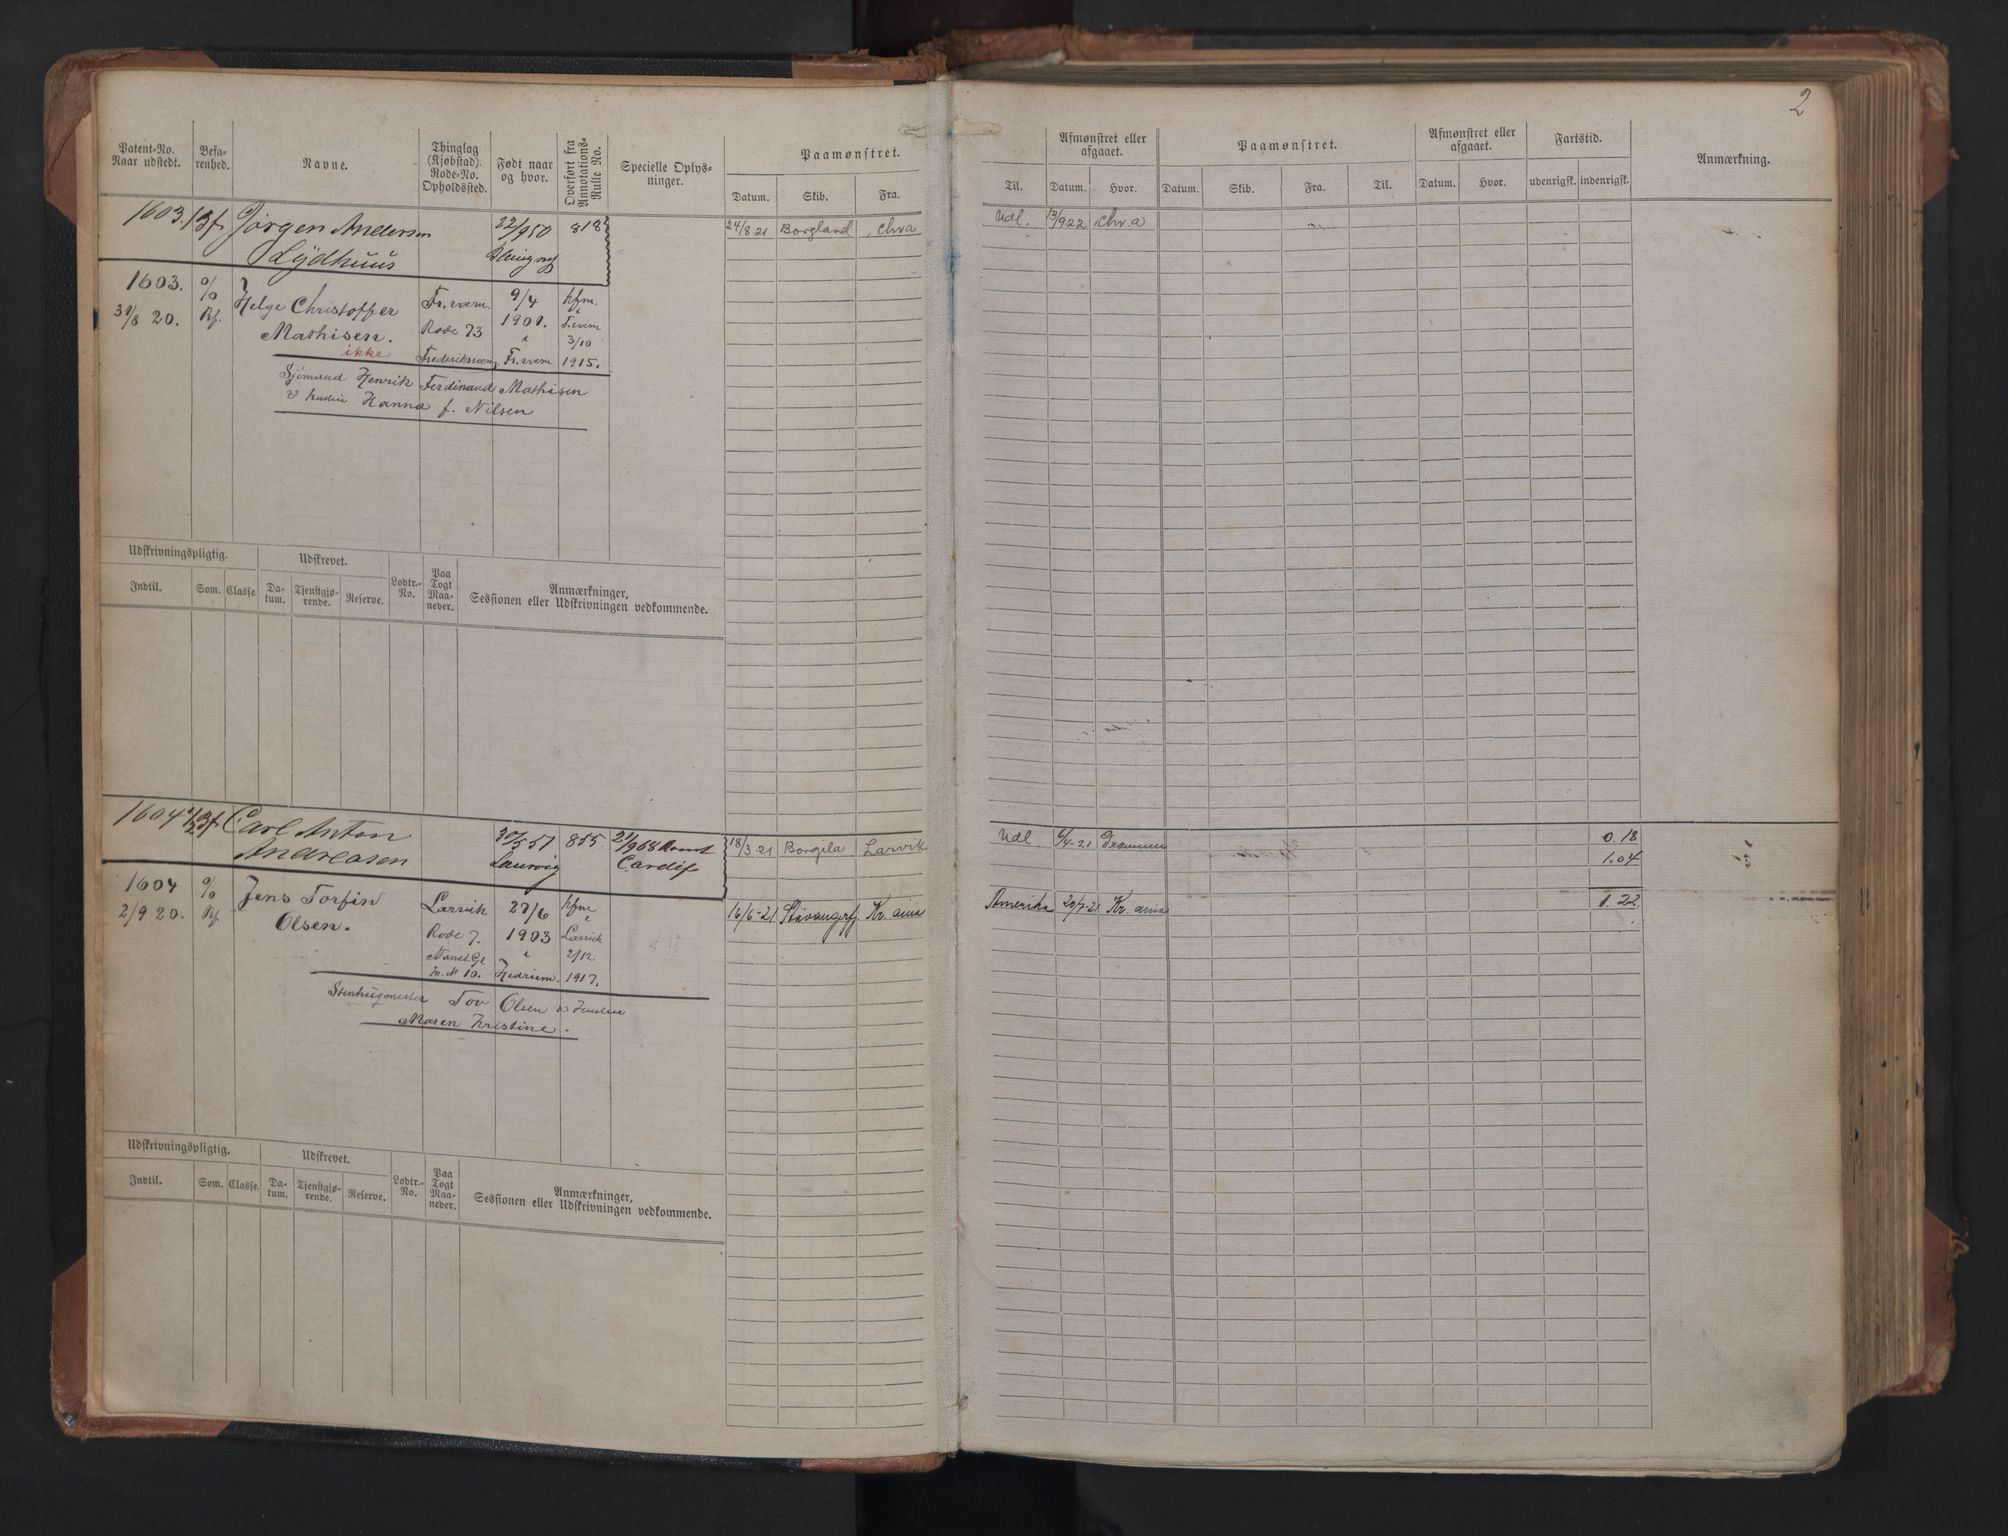 2
Patent-No. Naar udstedt.
Befarenhed.
Navne.
Thinglag (Kjøbstad). Rode-No. Opholdssted.
Født naar og hvor.
Overført fra Annotations-Rulle No.
Specielle Oplysninger.
Paamønstret.
Datum. Skib. Fra.
Til.
Afmønstret eller afgaaet.
Datum. Hvor.
Paamønstret.
Datum. Skib. Fra. Til.
Afmønstret eller afgaaet.
Datum. Hvor.
Fartstid.
udenrigsk. indenrigsk.
Anmærkning.
1603. Jørgen Andersen 22/9 50 818
Lydhuus
24/8.21 Borgland Chra Udl. 13/9.22 Chr.a
1603. % Helge Christoffer Fr.værn 9/4 hfm.
31/8 20. Rf. Mathisen. Rode 73 1901. Fr.værn
3/10
ikke Frederiksværn Fr.værn 1915.
Sjømand Henrik Ferdinand Mathisen
& hustru Hanna f. Nilsen
Udskrivningspligtig. Udskrevet. Lodtr.-No. Paa Togt Maaneder. Anmærkninger, Sessionen eller Udskrivningen vedkommende.
Indtil. Som. Classe. Datum. Tjenstgjørende. Reserve.
1604 Carl Anton 30/5 51 855 21/9 68 Rømt
Andreasen Laurvig Cardif
18/3.21 Borgila Larvik Udl. 6/4-21 Drammen 0.18
1.04
1604 % Jens Torfin Larvik 27/6 hfm
2/9 20. Rf. Olsen. Rode 7. 1903 Larvik
2/12
m.N 10. Hedrum. 1917.
16/6-21 Stavangerfj. Kr.ania Amerika 20/7-21 Kr.ania 1.22
Stenhugmester Tov Olsen & Hustru
Maren Kristine.
Udskrivningspligtig. Udskrevet. Lodtr.-No. Paa Togt Maaneder. Anmærkninger, Sessionen eller Udskrivningen vedkommende.
Indtil. Som. Classe. Datum. Tjenstgjørende. Reserve.